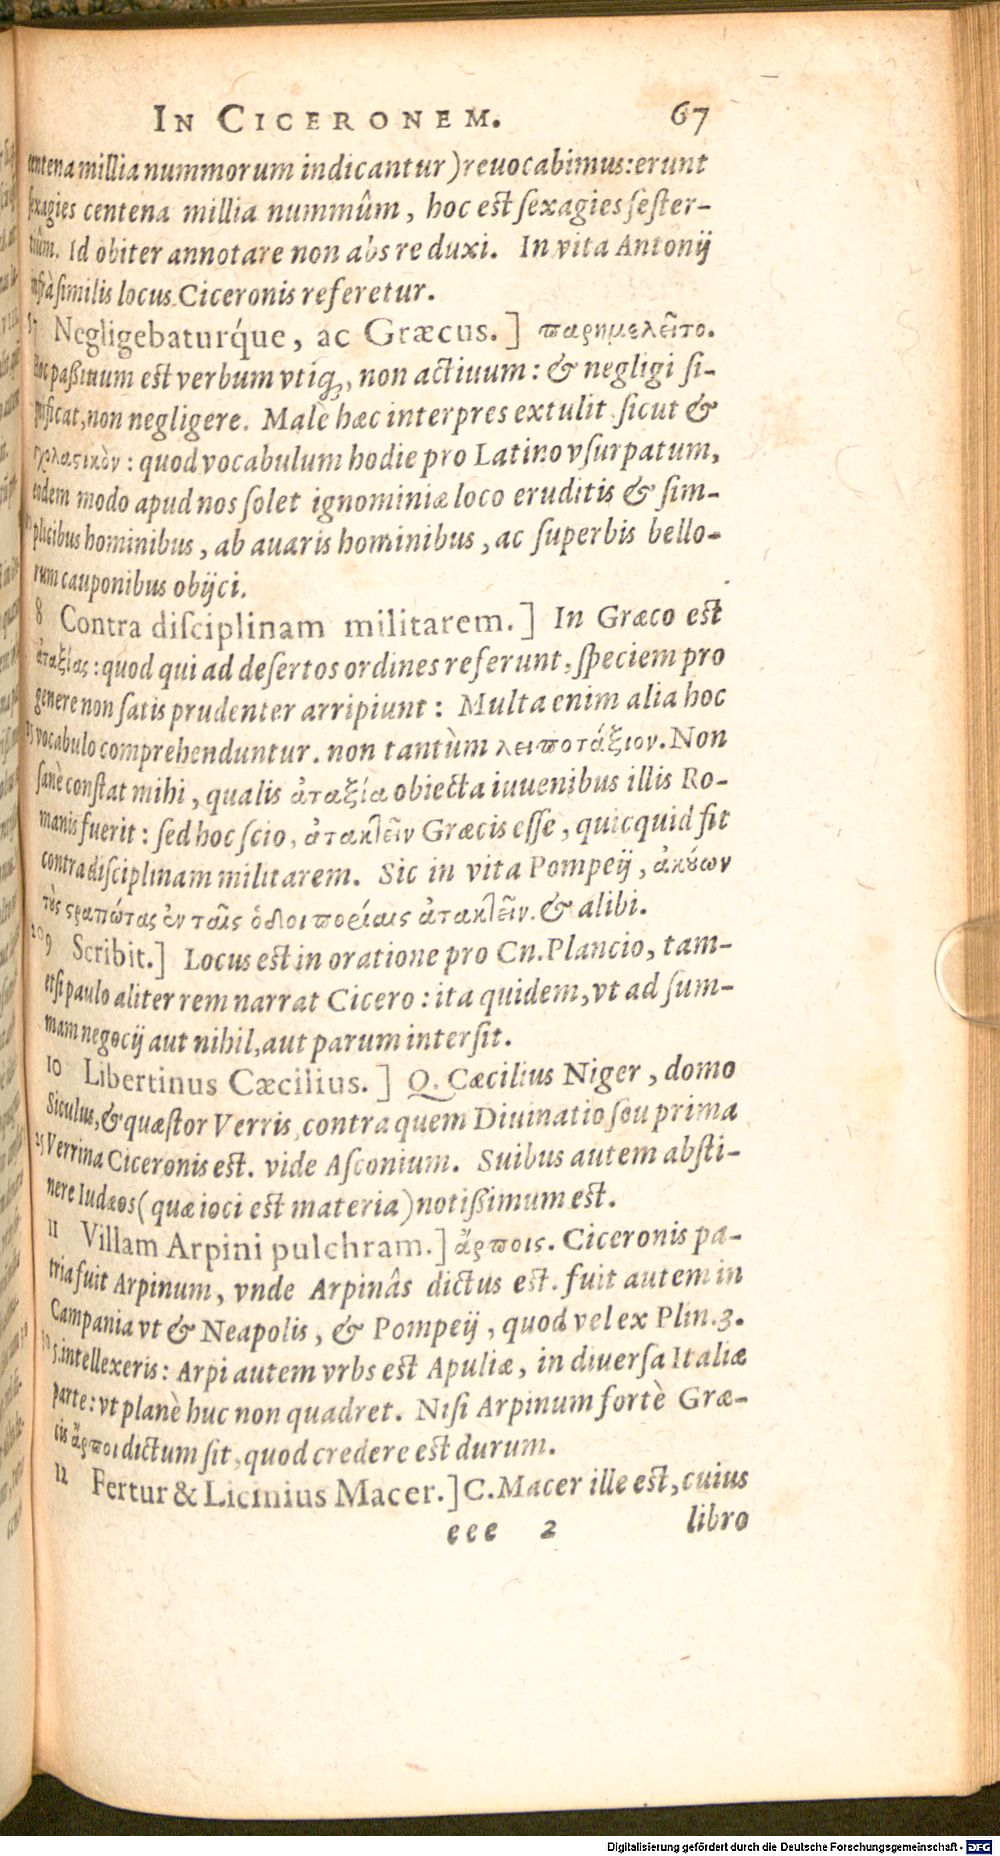 IN CICERONEM. 67
centena millia nummorum indicantur) reuocabimus: erunt
sexagies centena millia nummûm, hoc est sexagies sester-
tiûm. Id obiter annotare non abs re duxi. In vita Antonij
infrà similis locus Ciceronis referetur.
57 Negligebaturq́ue, ac Græcus.] παρημελεῖτο.
Hoc paßiuum est verbum vtiq;, non actiuum: & negligi si-
gnificat, non negligere. Malè hæc interpres extulit sicut &
σχολαστικὸν: quod vocabulum hodie pro Latino vsurpatum,
eodem modo apud nos solet ignominiæ loco eruditis & sim-
plicibus hominibus, ab auaris hominibus, ac superbis bello-
rum cauponibus obijci.
8 Contra disciplinam militarem.] In Græco est
ἀταξίας: quod qui ad desertos ordines referunt, speciem pro
genere non satis prudenter arripiunt: Multa enim alia hoc
15 vocabulo comprehenduntur. non tantùm λειποτάξιον. Non
sanè constat mihi, qualis ἀταξία obiecta iuuenibus illis Ro-
manis fuerit: sed hoc scio, ἀτακτεῖν Græcis esse, quicquid fit
contra disciplinam militarem. Sic in vita Pompeij, ἀκούων
τοὺς στρατιώτας ἐν ταῖς ὁδοιπορίαις ἀτακτεῖν. & alibi.
20 9 Scribit.] Locus est in oratione pro Cn. Plancio, tam-
etsi paulo aliter rem narrat Cicero: ita quidem, vt ad sum-
mam negocij aut nihil, aut parum intersit.
10 Libertinus Cæcilius.] Q. Cæcilius Niger, domo
Siculus, & quæstor Verris, contra quem Diuinatio seu prima
25 Verrina Ciceronis est. vide Asconium. Suibus autem absti-
nere Iudæos (quæ ioci est materia) notißimum est.
11 Villam Arpini pulchram.] ἄρποις. Ciceronis pa-
tria fuit Arpinum, vnde Arpinâs dictus est. fuit autem in
Campania vt & Neapolis, & Pompeij, quod vel ex Plin. 3.
30 5. intellexeris: Arpi autem vrbs est Apuliæ, in diuersa Italiæ
parte: vt planè huc non quadret. Nisi Arpinum fortè Græ-
cis ἄρποι dictum sit, quod credere est durum.
12 Fertur & Licinius Macer.] C. Macer ille est, cuius
eee 2 libro
Digitalisierung gefördert durch die Deutsche Forschungsgemeinschaft - DFG